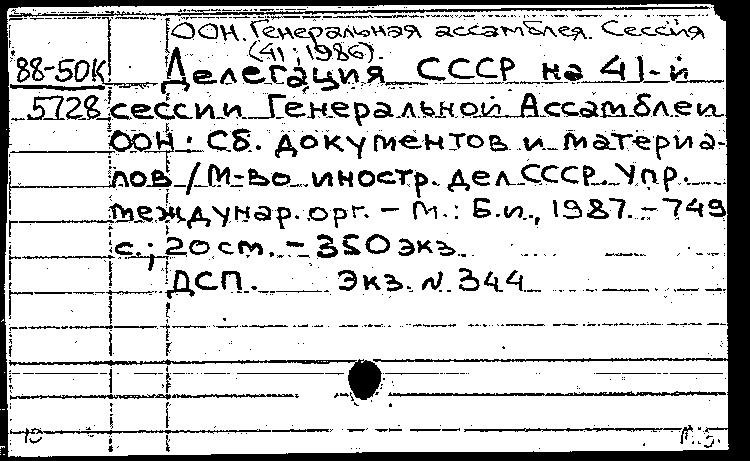 ООН. Генеральная ассамблея. Сессия
(41; 1986).
88-50К Делегация СССР на 41-й
5728 сессии Генеральной Ассамблеи
ООН: Сб. документов и материа-
лов / М-во иностр. дел СССР. Упр.
междунар. орг. - М.: Б.и., 1987. - 749
с.; 20 см. - 350 экз.
ДСП. Экз. N 344